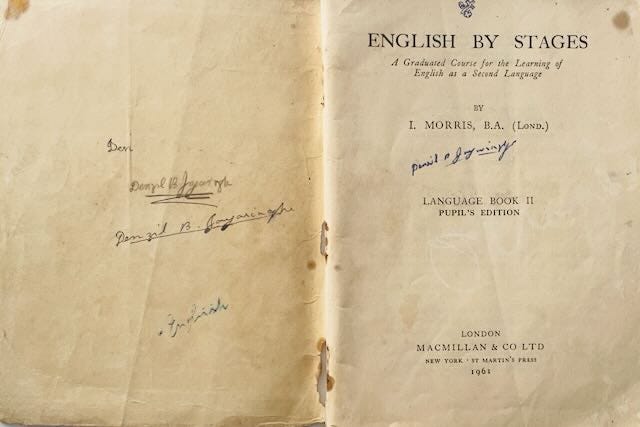 Den
Denzil B Jayasingha
Denzil B. Jayasinghe
English
ENGLISH BY STAGES
A Graduated Course for the Learning of
English as a Second Language
BY
I. MORRIS, B.A. (LOND.)
Denzil B Jayasinghe
LANGUAGE BOOK II
PUPIL'S EDITION
LONDON
MACMILLAN & CO LTD
NEW YORK · ST MARTIN'S PRESS
1961